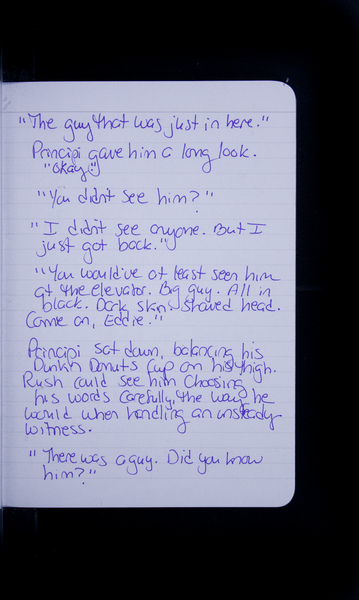 "The guy that was just in here."
Principi gave him a long look.
"Okay."
"You didn't see him?"
"I didn't see anyone. But I
just got back."
"You would've at least seen him
at the elevator. Big guy. All in
black. Dark skin, shaved head.
Come on, Eddie."
Principi sat down, balancing his
Dunkin Donuts cup on his thigh.
Rush could see him choosing
his words carefully, the way he
would when handling an unsteady
witness.
"There was a guy. Did you know
him?"